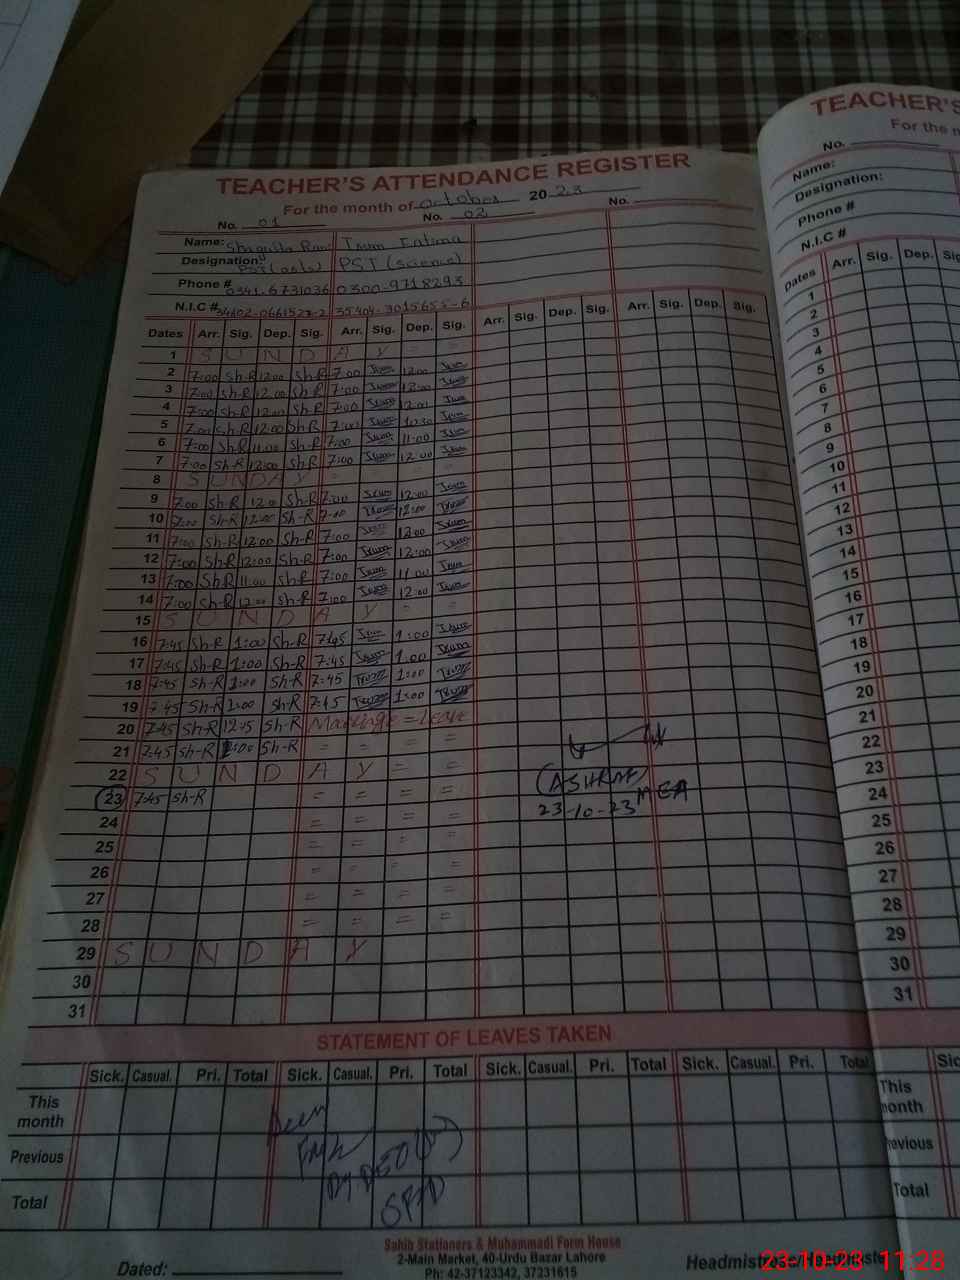 TEACHER'S ATTENDANCE REGISTER
For the month of October 2023
No. 01 No. 02 No.
Name: Irum Fatima
Designation: PST (arts) PST (science)
Phone # 0341-6731036 0300-9718293
N.I.C # 35404-3015655-6
Dates Arr. Sig. Dep. Sig. Arr. Sig. Dep. Sig. Arr. Sig. Dep. Sig. Arr. Sig. Dep. Sig.
1 SUNDAY = =
2 7:00 Sh-R 12:00 Sh-R 7:00 Irum 12:00 Irum
3 7:00 Sh-R 12:00 Sh-R 7:00 Irum 12:00 Irum
4 7:00 Sh-R 12:00 Sh-R 7:00 Irum 12:00 Irum
5 7:00 Sh-R 12:00 Sh-R 7:00 Irum 10:30 Irum
6 7:00 Sh-R 11:00 Sh-R 7:00 Irum 11:00 Irum
7 7:00 Sh-R 12:00 Sh-R 7:00 Irum 12:00 Irum
8 SUNDAY = = =
9 7:00 Sh-R 12:00 Sh-R 7:00 Irum 12:00 Irum
10 7:00 Sh-R 12:00 Sh-R 7:00 Irum 12:00 Irum
11 7:00 Sh-R 12:00 Sh-R 7:00 Irum 12:00 Irum
12 7:00 Sh-R 12:00 Sh-R 7:00 Irum 12:00 Irum
13 7:00 Sh-R 11:00 Sh-R 7:00 Irum 11:00 Irum
14 7:00 Sh-R 12:00 Sh-R 7:00 Irum 12:00 Irum
15 SUNDAY = =
16 7:45 Sh-R 1:00 Sh-R 7:45 Irum 1:00 Irum
17 7:45 Sh-R 1:00 Sh-R 7:45 Irum 1:00 Irum
18 7:45 Sh-R 1:00 Sh-R 7:45 Irum 1:00 Irum
19 7:45 Sh-R 1:00 Sh-R 7:45 Irum 1:00 Irum
20 7:45 Sh-R 12:15 Sh-R Marriage = Leave
21 7:45 Sh-R 1:00 Sh-R = = = =
22 SUNDAY = =
23 7:45 Sh-R = = = =
24 = = = =
25 = = = =
26 = = = =
27 = = = =
28 = = = =
29 SUNDAY
30
31
(ASHRAF)
MEA
23-10-23
STATEMENT OF LEAVES TAKEN
Sick. Casual. Pri. Total Sick. Casual. Pri. Total Sick. Casual. Pri. Total Sick. Casual. Pri. Total
This month
Previous
Total
Sahib Stationers & Muhammadi Form House
2-Main Market, 40-Urdu Bazar Lahore
Ph: 42-37123342, 37231615
Dated:
TEACHER'S
For the m
No.
Name:
Designation:
Phone #
N.I.C #
Dates Arr. Sig. Dep. Sig
1
2
3
4
5
6
7
8
9
10
11
12
13
14
15
16
17
18
19
20
21
22
23
24
25
26
27
28
29
30
31
Sic
This
month
Previous
Total
23-10-23 11:28